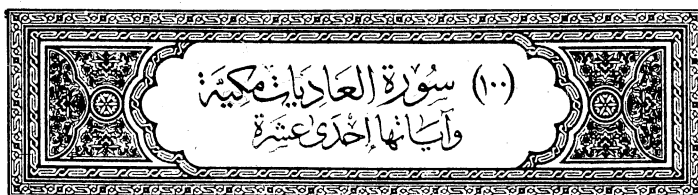 (١٠٠) سُورَة العَاديَات مَكيَّة
وَآيَاتهَا إِحْدَى عَشرَة